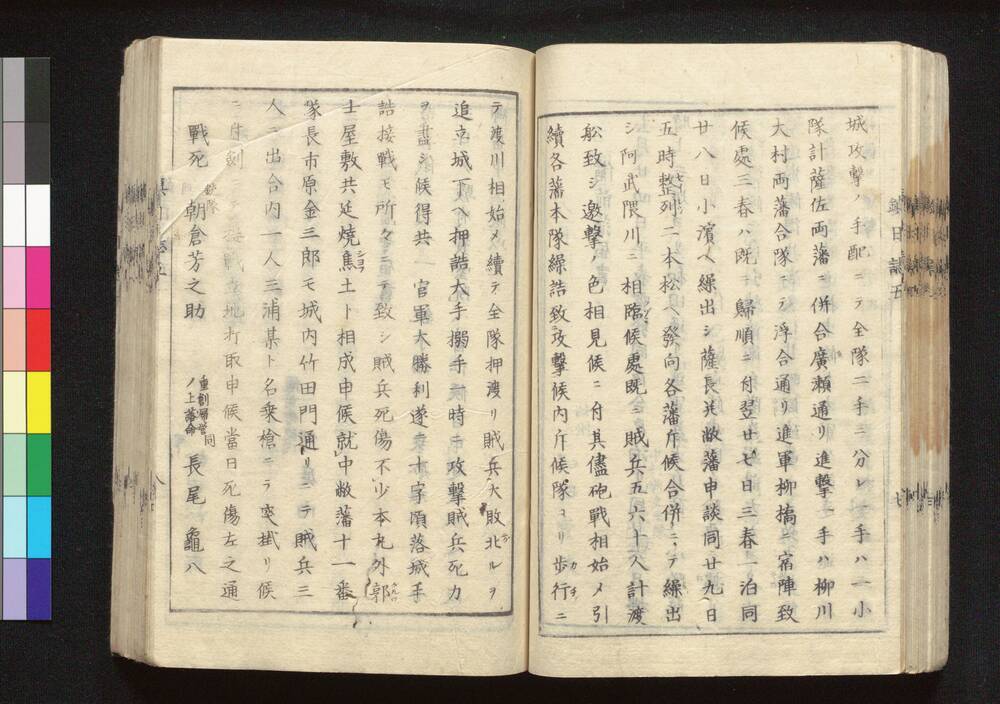 城攻撃ノ手配ニテ全隊二手ニ分レ一手ハ一小
隊計薩佐両藩ニ併合廣瀬通リ進撃一手ハ柳川
大村両藩合隊ニテ浮合通リ進軍柳橋ニ宿陣致
候處三春ハ既ニ歸順ニ付翌廿七日三春一泊同
廿八日小濱ヘ繰出シ薩長並敝藩申談同廿九日
五時整列二本松ヘ發向各藩斥候合併ニテ繰出
シ阿武隈川ニ相臨候處既ニ賊兵五六十人計渡
舩致シ邀撃ノ色相見候ニ付其儘砲戰相始メ引
續各藩本隊繰詰致攻撃候内斥候隊ヨリ歩行ニ
テ渡川相始メ續テ全隊押渡リ賊兵大敗北ルヲ
追立城下ヘ押詰大手搦手候時ニ攻撃賊兵死力
ヲ盡シ候得共官軍大勝利遂ニ十字頃落城手
詰接戰モ所々ニテ致シ賊兵死傷不少本丸外郭
士屋敷共延燒焦土ト相成申候就中敝藩十一番
隊長市原金三郎モ城内竹田門通リニテ賊兵三
人ニ出合内一人三浦某ト名乗槍ニテ突掛リ候
戰立地打取申候當日死傷左之通
戰死 朝倉芳之助 重創歸營ノ上落命 同 長尾龜八